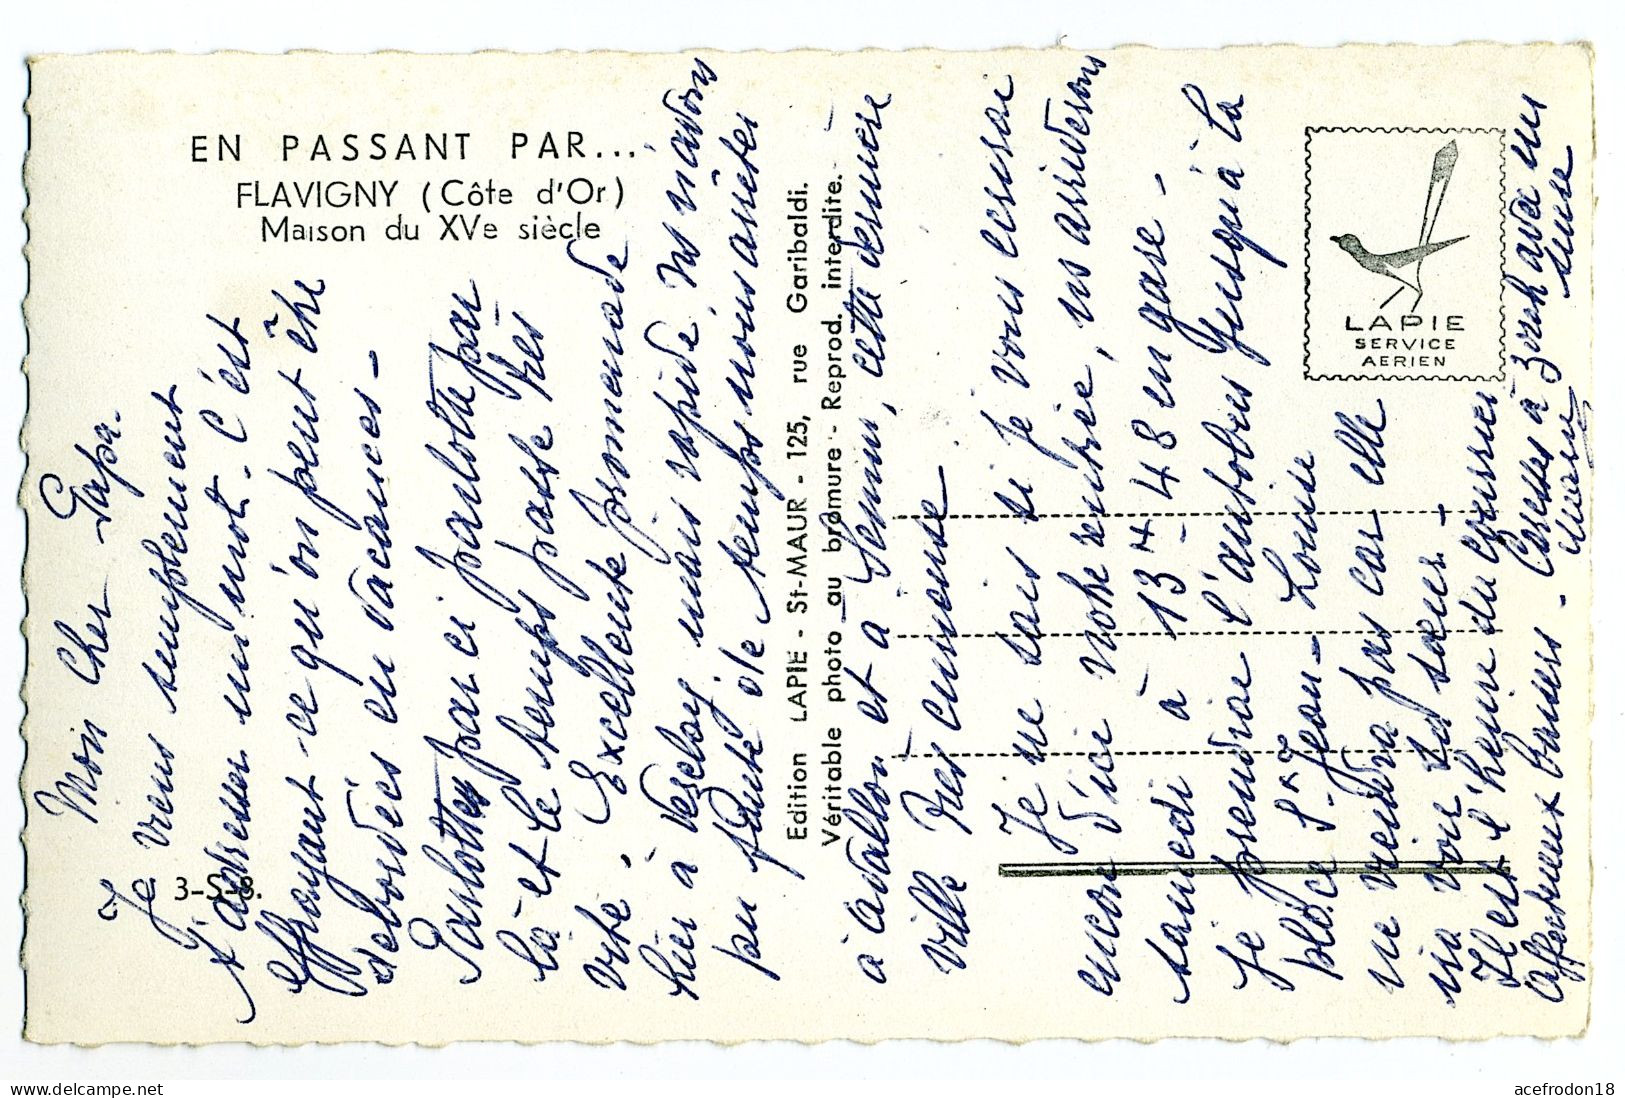 EN PASSANT PAR...
FLAVIGNY (Côte d'Or)
Maison du XVe siècle
3-S-8.
Edition LAPIE - St-MAUR - 125, rue Garibaldi.
Véritable photo au bromure - Reprod. interdite.
LAPIE
SERVICE
AERIEN
Mon Cher Papa.
Je viens simplement
t'adresser un mot. C'est
effrayant ce qu'on peut être
débordées en vacances -
Parlottes par ci parlotte par
là et le temps passe très
vite. Excellente promenade
hier à Vézelay, mais rapide. Ns n'avons
pu faute de temps nous arrêter
à Avallon et à Semur, cette dernière
ville très curieuse
Je ne sais si je vous écrirai
encore d'ici notre rentrée, ns arriverons
samedi à 13 H 48 en gare -
Je prendrai l'autobus jusqu'à la
place St Jean - Louise
ne viendra pas car elle
ira voir sa sœur -
Il est l'heure du courrier
Affectueux baisers - Caresses à avec un
Marie
acefrodon18